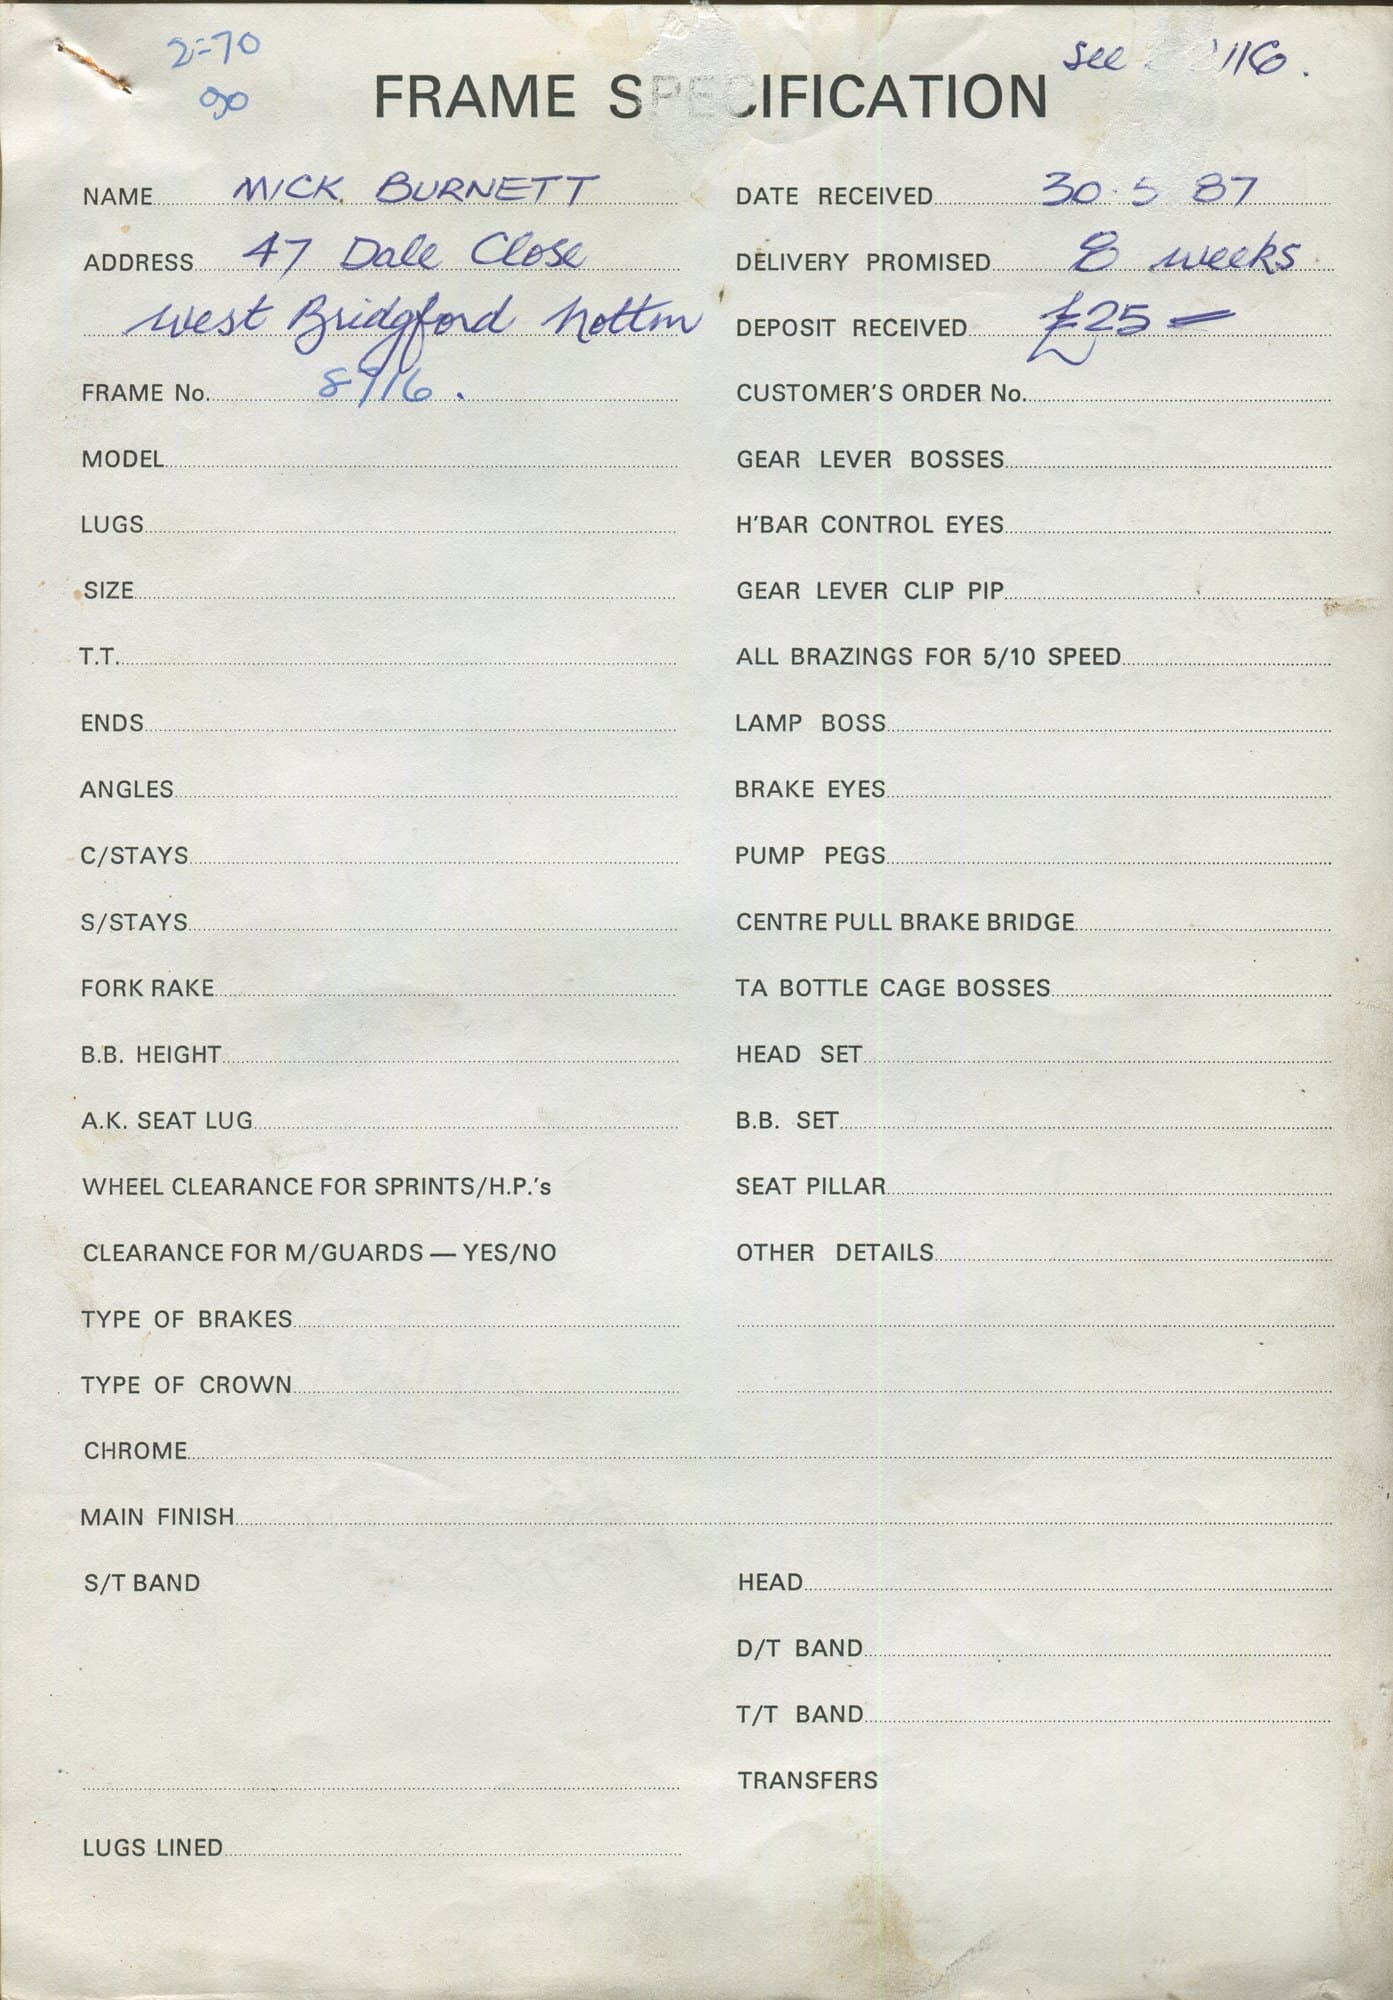 2=70
90
see 116.
FRAME SPECIFICATION
NAME MICK. BURNETT
ADDRESS 47 Dale Close
West Bridgford Nottm
FRAME No. 8916.
MODEL
LUGS
SIZE
T.T.
ENDS
ANGLES
C/STAYS
S/STAYS
FORK RAKE
B.B. HEIGHT
A.K. SEAT LUG
WHEEL CLEARANCE FOR SPRINTS/H.P.'s
CLEARANCE FOR M/GUARDS — YES/NO
TYPE OF BRAKES
TYPE OF CROWN
DATE RECEIVED 30·5 87
DELIVERY PROMISED 8 weeks
DEPOSIT RECEIVED £25 =
CUSTOMER'S ORDER No.
GEAR LEVER BOSSES
H'BAR CONTROL EYES
GEAR LEVER CLIP PIP
ALL BRAZINGS FOR 5/10 SPEED
LAMP BOSS
BRAKE EYES
PUMP PEGS
CENTRE PULL BRAKE BRIDGE
TA BOTTLE CAGE BOSSES
HEAD SET
B.B. SET
SEAT PILLAR
OTHER DETAILS
CHROME
MAIN FINISH
S/T BAND
LUGS LINED
HEAD
D/T BAND
T/T BAND
TRANSFERS